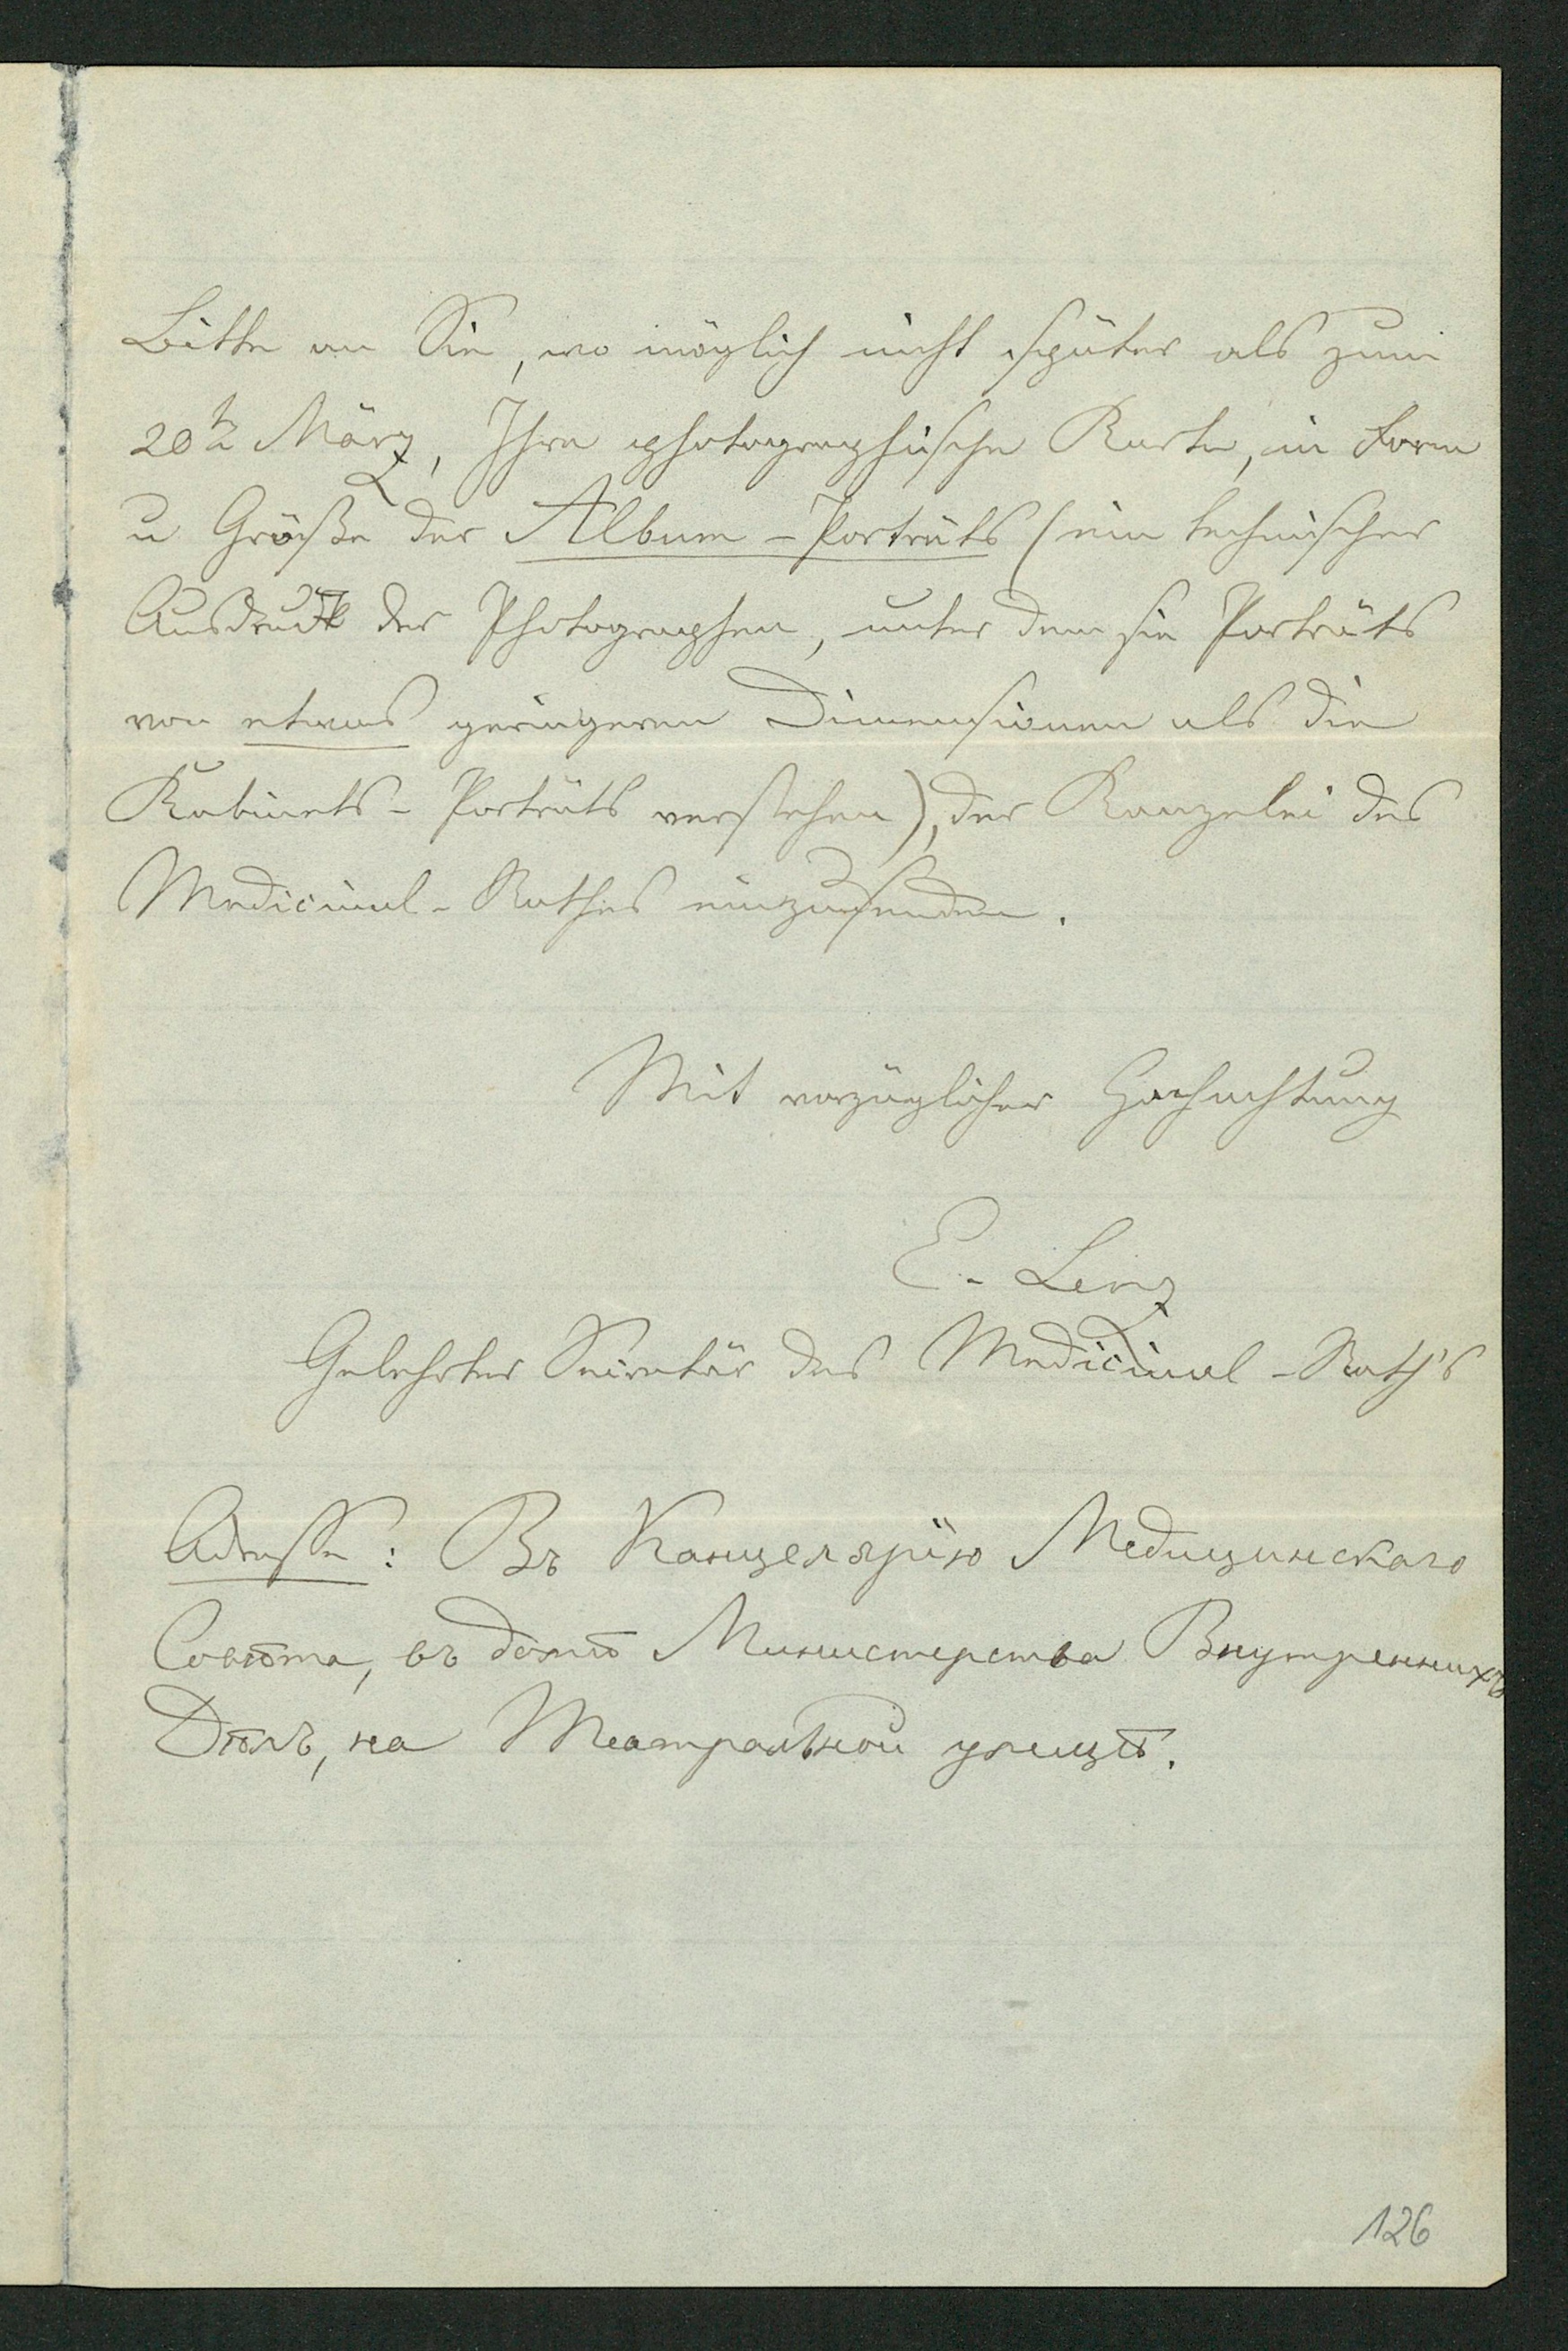 Bitte an Sie, wo möglich nicht später als zum
20ten März, Ihre photographische Karte, in Form
u Größe der Album-Porträts (ein technischer
Ausdruck der Photographen, unter dem sie Porträts
von etwas geringeren Dimensionen als die
Kabinets-Porträts verstehen), der Kanzelei des
Medicinal-Rathes einzusenden.
Mit vorzüglicher Hochachtung
E. Lenz
Gelehrter Secretär des Medicinal-Rath's
Adresse: Въ Канцелярiю Медицинскаго
Совѣта, въ домѣ Министерства Внутреннихъ
Дѣлъ, на Театральной улицѣ.
126